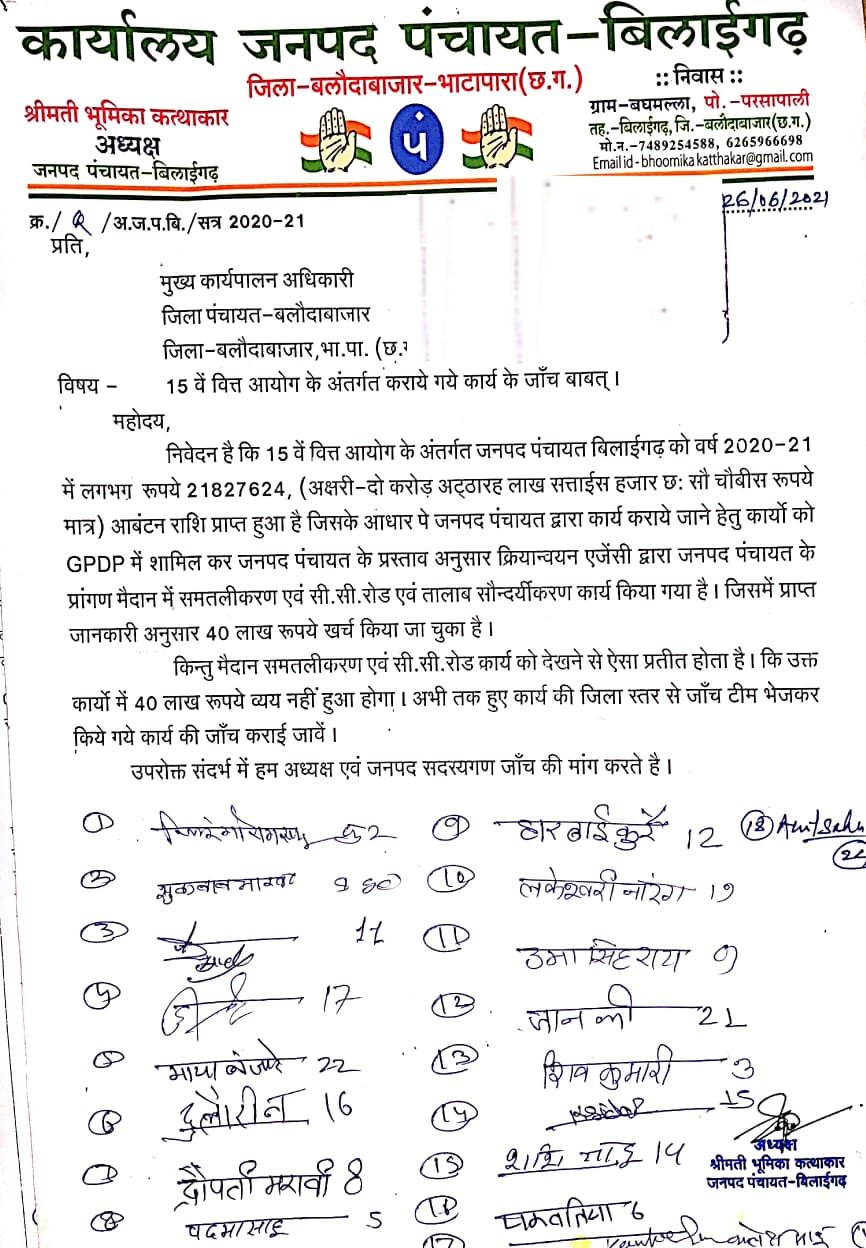 कार्यालय जनपद पंचायत-बिलाईगढ़
जिला-बलौदाबाजार-भाटापारा(छ.ग.)
श्रीमती भूमिका कत्थाकार
अध्यक्ष
जनपद पंचायत-बिलाईगढ़
पं
:: निवास ::
ग्राम-बघमल्ला, पो.-परसापाली
तह.-बिलाईगढ़, जि.-बलौदाबाजार(छ.ग.)
मो.न.-7489254588, 6265966698
Email id - bhoomika katthakar@gmail.com
26/06/2021
क्र./ /अ.ज.प.बि./सत्र 2020-21
प्रति,
मुख्य कार्यपालन अधिकारी
जिला पंचायत-बलौदाबाजार
जिला-बलौदाबाजार,भा.पा. (छ.ग
विषय - 15 वें वित्त आयोग के अंतर्गत कराये गये कार्य के जाँच बाबत्।
महोदय,
निवेदन है कि 15 वें वित्त आयोग के अंतर्गत जनपद पंचायत बिलाईगढ़ को वर्ष 2020-21
में लगभग रूपये 21827624, (अक्षरी-दो करोड़ अट्ठारह लाख सत्ताईस हजार छः सौ चौबीस रूपये
मात्र) आबंटन राशि प्राप्त हुआ है जिसके आधार पे जनपद पंचायत द्वारा कार्य कराये जाने हेतु कार्यो को
GPDP में शामिल कर जनपद पंचायत के प्रस्ताव अनुसार क्रियान्वयन एजेंसी द्वारा जनपद पंचायत के
प्रांगण मैदान में समतलीकरण एवं सी.सी.रोड एवं तालाब सौन्दर्यीकरण कार्य किया गया है। जिसमें प्राप्त
जानकारी अनुसार 40 लाख रूपये खर्च किया जा चुका है।
किन्तु मैदान समतलीकरण एवं सी.सी.रोड कार्य को देखने से ऐसा प्रतीत होता है। कि उक्त
कार्यो में 40 लाख रूपये व्यय नहीं हुआ होगा। अभी तक हुए कार्य की जिला स्तर से जाँच टीम भेजकर
किये गये कार्य की जाँच कराई जावें।
उपरोक्त संदर्भ में हम अध्यक्ष एवं जनपद सदस्यगण जाँच की मांग करते है।
1
2
3 11
4 17
5 माया बंजारे 22
6 दुलौरीन 16
7 द्रौपती मरावी 8
8 पदमा साहू 5
9 हारबाई कुर्रे 12
10 लकेश्वरी नारंग 19
11 उमा सिंह राय 9
12 जानकी 21
13 शिव कुमारी 3
14 15
15 शशि साहू 14
16 6
17
18 Amit Sahu
अध्यक्ष
श्रीमती भूमिका कत्थाकार
जनपद पंचायत-बिलाईगढ़